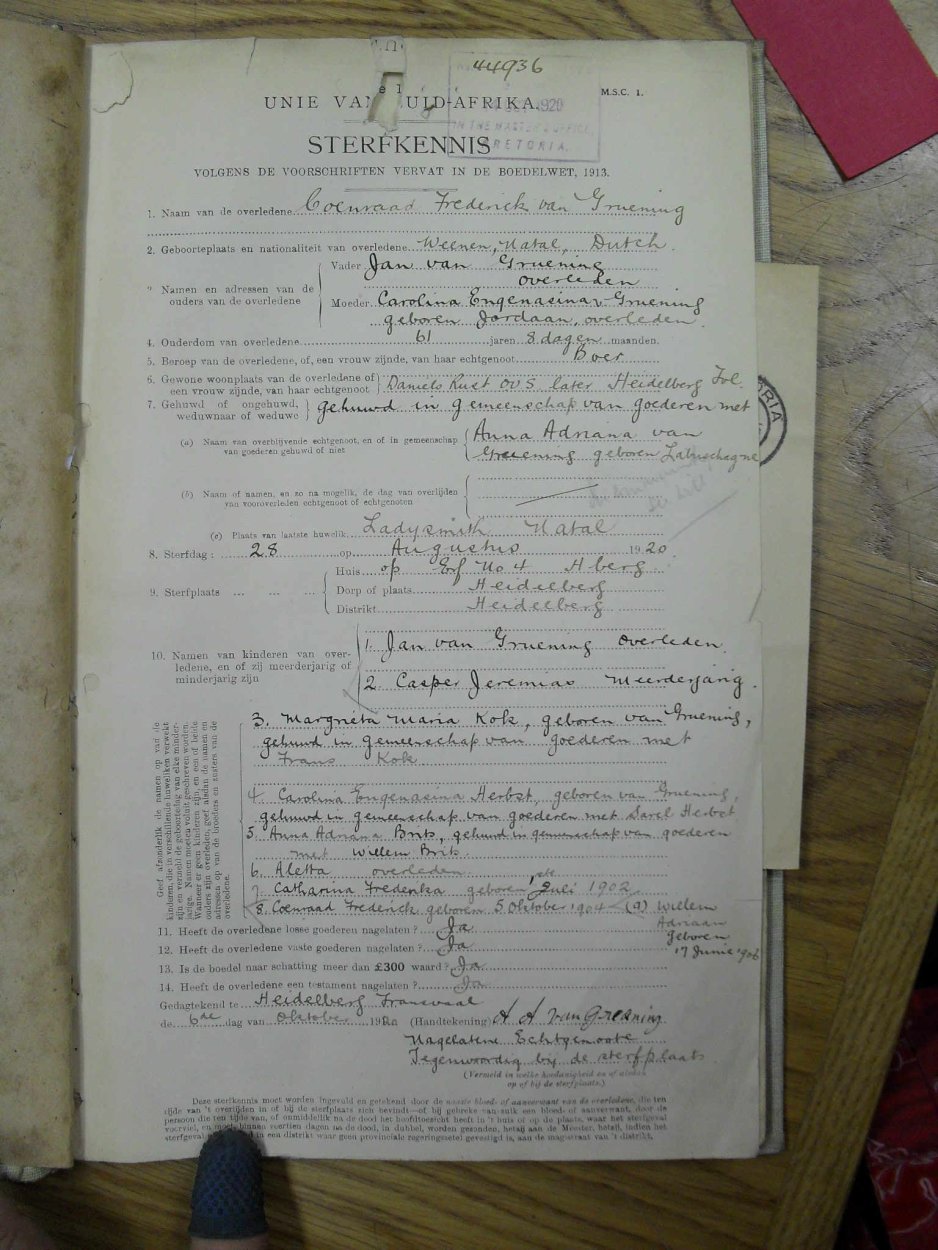 44936
M.S.C. 1.
UNIE VAN ZUID-AFRIKA.
1920
IN THE MASTER'S OFFICE
PRETORIA.
STERFKENNIS
VOLGENS DE VOORSCHRIFTEN VERVAT IN DE BOEDELWET, 1913.
1. Naam van de overledene Coenraad Frederick van Gruening
2. Geboorteplaats en nationaliteit van overledene Weenen, Natal, Dutch
Namen en adressen van de ouders van de overledene
Vader Jan van Gruening
overleden
Moeder Carolina Engenasina v Gruening
geboren Jordaan, overleden
4. Ouderdom van overledene 61 jaren 8 dagen maanden.
5. Beroep van de overledene, of, een vrouw zijnde, van haar echtgenoot Boer
6. Gewone woonplaats van de overledene of een vrouw zijnde, van haar echtgenoot Daniels Rust OVS later Heidelberg Tvl.
7. Gehuwd of ongehuwd, weduwnaar of weduwe gehuwd in gemeenschap van goederen met
(a) Naam van overblijvende echtgenoot, en of in gemeenschap van goederen gehuwd of niet Anna Adriana van
Gruening geboren Labuschagne
(b) Naam of namen, en zo na mogelik, de dag van overlijden van vooroverleden echtgenoot of echtgenoten
(c) Plaats van laatste huwelik Ladysmith Natal
8. Sterfdag: 28 op Augustus 1920
9. Sterfplaats
Huis op Erf No 4 Hberg
Dorp of plaats Heidelberg
Distrikt Heidelberg
10. Namen van kinderen van overledene, en of zij meerderjarig of minderjarig zijn
1. Jan van Gruening overleden
2. Casper Jeremias Meerderjarig
3. Margrieta Maria Kok, geboren van Gruening,
gehuwd in gemeenschap van goederen met
Frans Kok
4. Carolina Engenasina Herbst, geboren van Gruening,
gehuwd in gemeenschap van goederen met Sarel Herbst
5. Anna Adriana Brits, gehuwd in gemeenschap van goederen
met Willem Brits.
6. Aletta overleden
7. Catharina Frederika geboren Juli 1902
8. Coenraad Frederick geboren 5 Oktober 1904 (9) Willem
Adriaan
geboren
17 Junie 1906
Geef afzonderlik de namen op van de kinderen, die in verschillende huweliken verwekt zijn en vermeld de geboortedag van elke minderjarige. Namen moeten voluit geschreven worden. Wanneer er geen kinderen zijn, en een of beide ouders zijn overleden, geef alsdan de namen en adressen op van de broeders en zusters van de overledene.
11. Heeft de overledene losse goederen nagelaten? Ja
12. Heeft de overledene vaste goederen nagelaten? Ja
13. Is de boedel naar schatting meer dan £300 waard? Ja
14. Heeft de overledene een testament nagelaten? Ja
Gedagtekend te Heidelberg Transvaal
de 6de dag van Oktober 1920 (Handtekening) A A van Greuning
Nagelatene Echtgenoote
Tegenwoordig bij de sterfplaats
(Vermeld in welke hoedanigheid en of aldan op of bij de sterfplaats.)
Deze sterfkennis moet worden ingevuld en getekend door de naaste bloed- of aanverwant van de overledene, die ten
tijde van 't overlijden in of bij de sterfplaats zich bevindt—of bij gebreke van zulk een bloed- of aanverwant, door de
persoon die ten tijde van, of onmiddellik na de dood het hoofdtoezicht heeft in 't huis of op de plaats, waar het sterfgeval
voorviel, en moet binnen veertien dagen na de dood, in dubbel, worden gezonden, hetzij aan de Meester, hetzij, indien het
sterfgeval in een distrikt waar geen provinciale regeringszetel gevestigd is, aan de magistraat van 't distrikt.